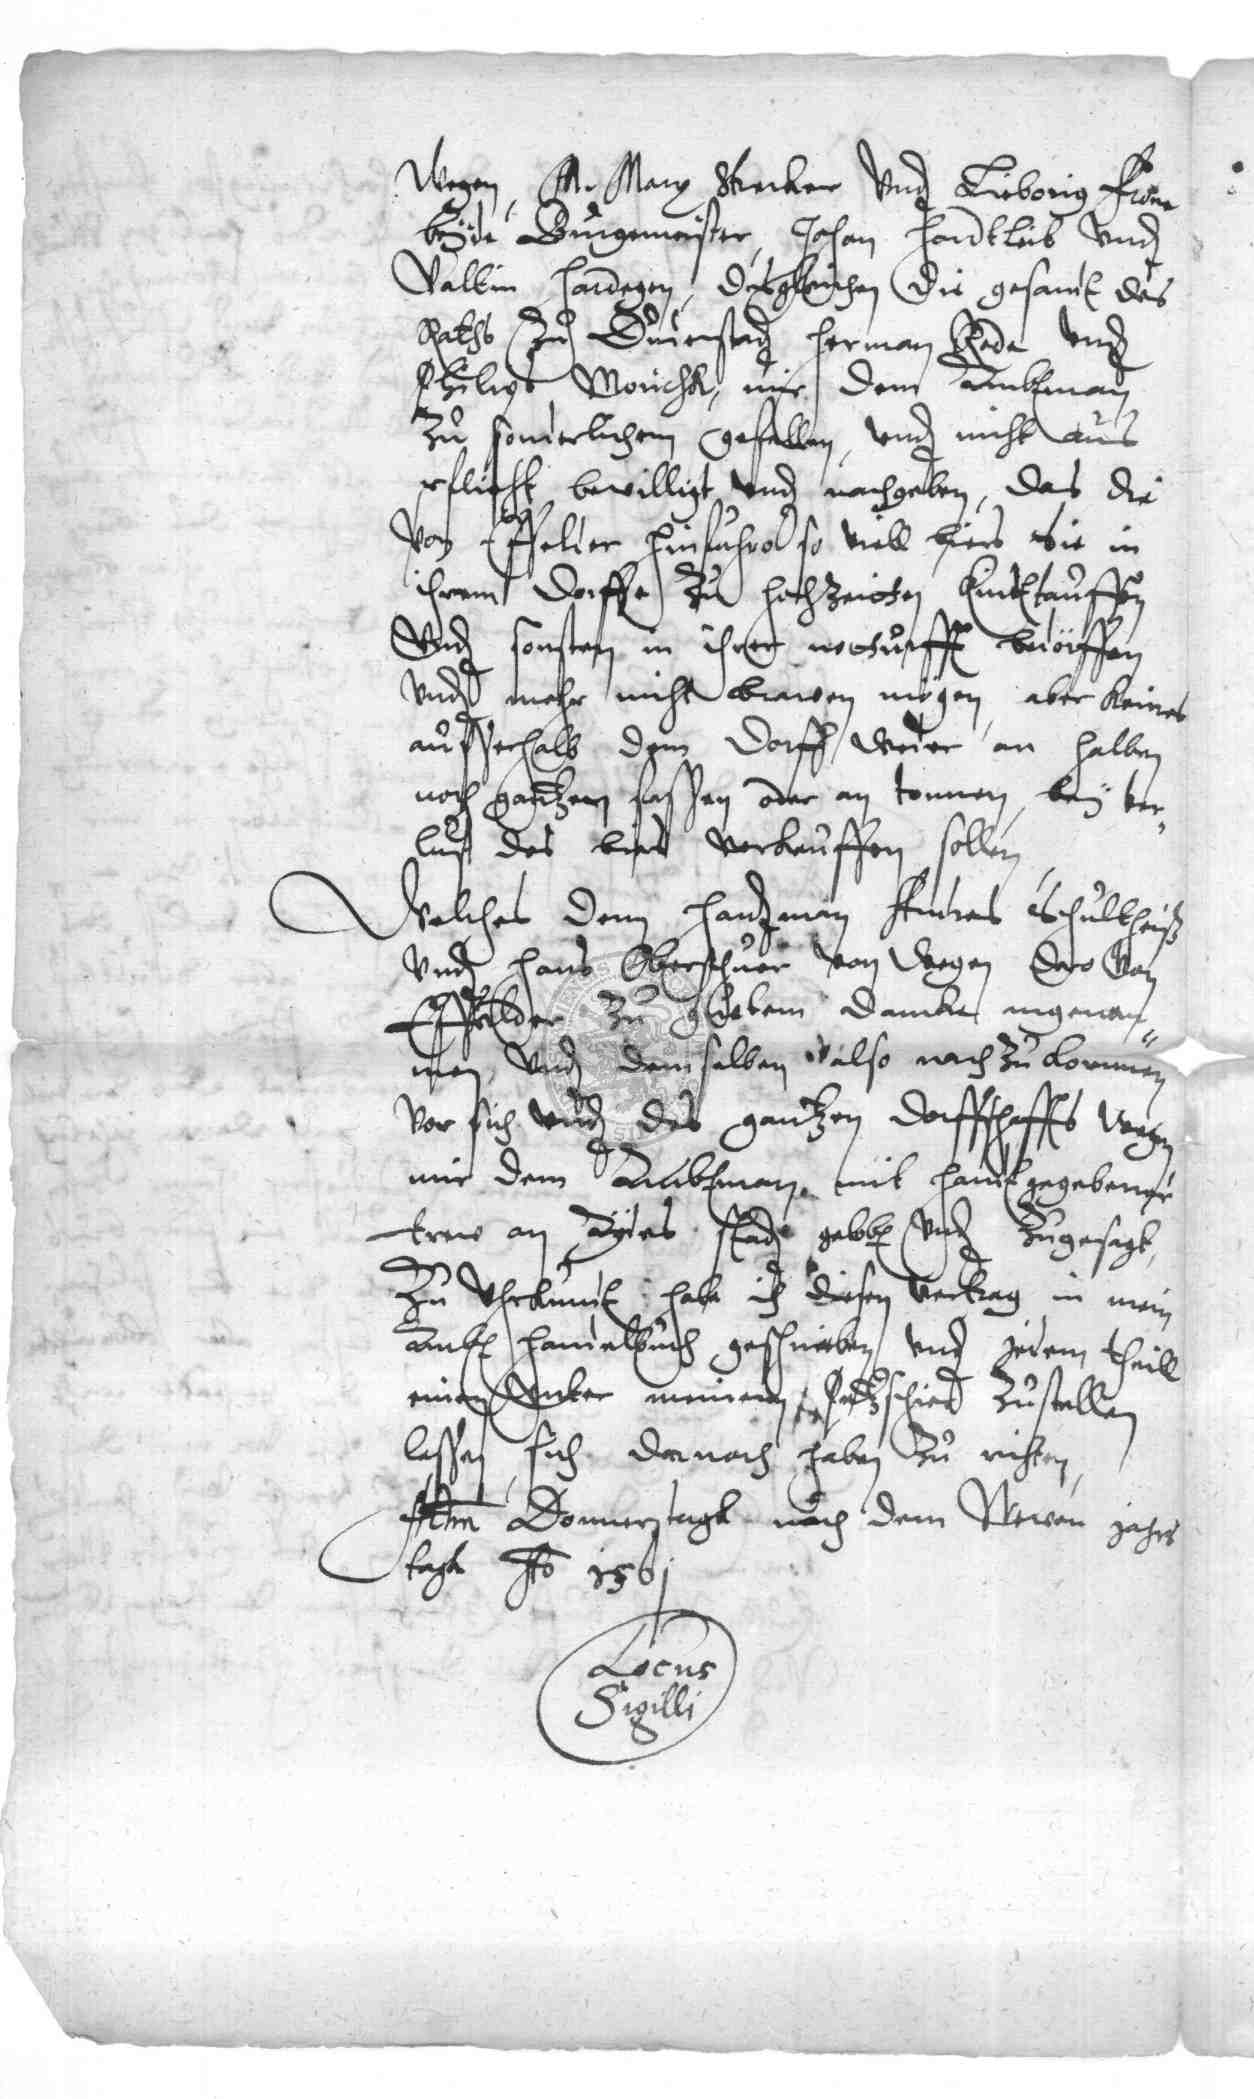 Wegen, M. Marx Strecker Vnd Liborig Frone
beÿde Burgemeister, Johan Hardtleib Vnd
Valltin Hardegen, desgleichen die gesantt des
Raths Zu Duderstad Herman Rode Vnd
mir dem Ambtman
Zu sonderlichem gefallen, vnd nicht aus
pflicht bewilligt vnd nachgeben, das die
von Effelder hinfuhro so viell biers sie in
ihrem dorffe Zu hochzeiten Kindttauffen
Vnd sonsten in ihrer notturfft bedörffen
Vnd mehr nicht brawen mögen, aber keines
ausserhalb dem dorff weder an halben
noch gantzen fassen oder an tonnen, beÿ ver„
lust des biers verkauffen sollen,
Welches dem Hantzman Andres Schultheiß
vnd Hans Oberthuer von wegen dero von
Effelder Zu gutem dancke angenom„
men, vnd demselben also nach Zu kommen
vor sich vnd des gantzen dorffschafft wegen
mir dem Ambtman mit handtgegebener
trew an Eÿdes stad gelobt vnd Zugesagt,
Zu Vhrkundt habe ich diesen vertrag in mein
Ambt handelbuch geschrieben vnd jedem theill
einen vnter meinem Pitzschier Zustellen
lassen, sich darnach haben Zu richten,
Am Donnerstagk nach dem Newen jahrs
tagk Ao 1561
Locus
Sigilli